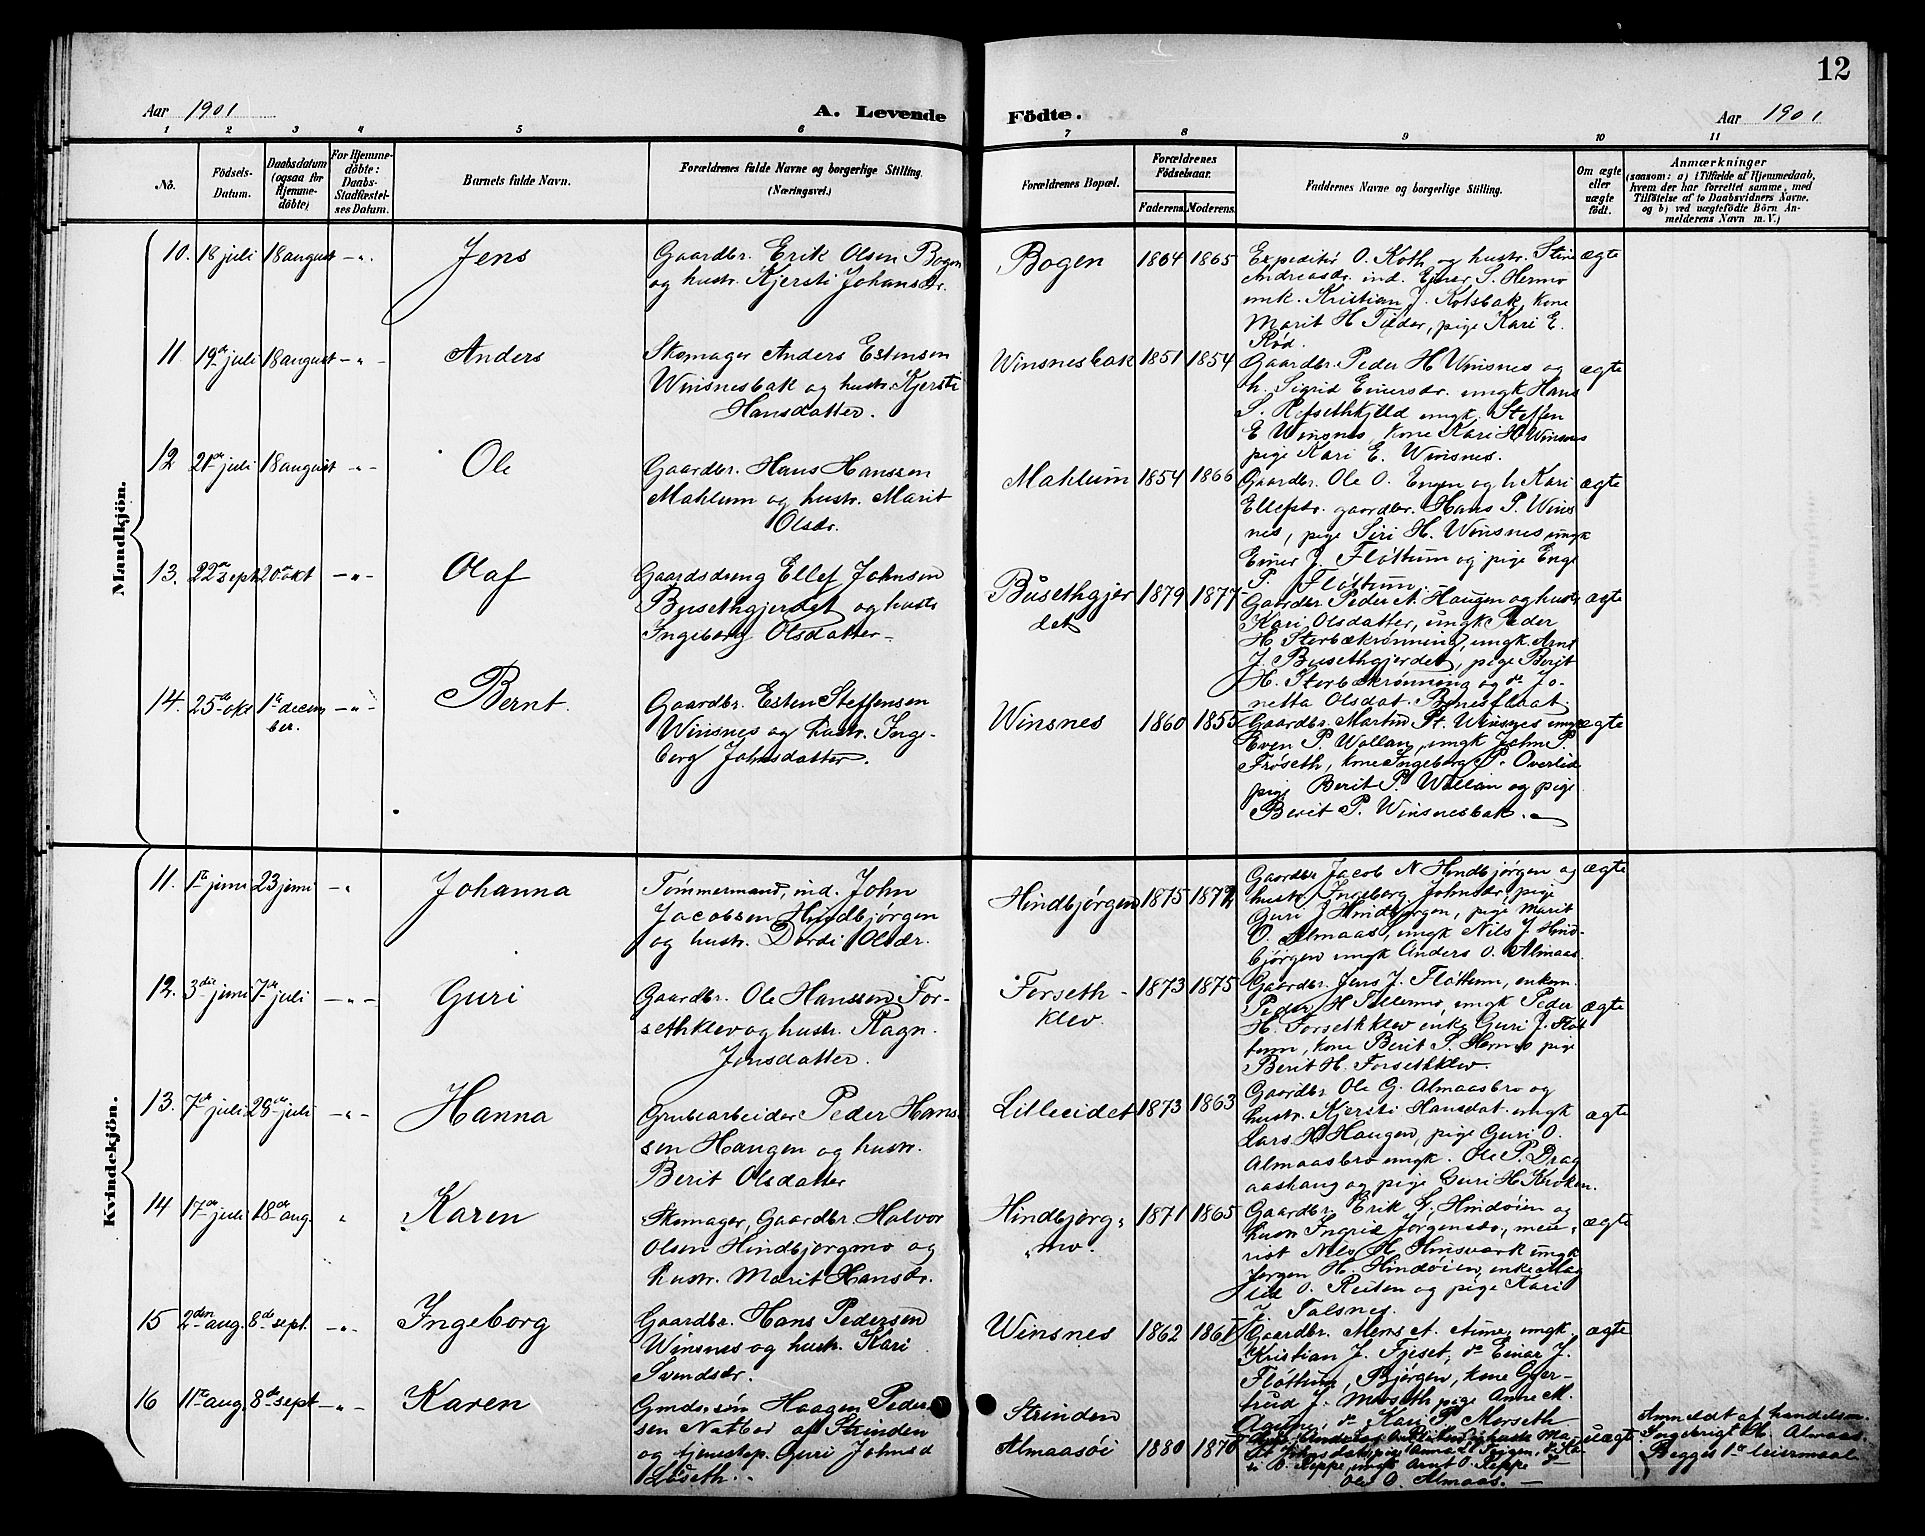 12
Aar 1901
A. Levende Födte.
Aar 1901
1 2 3 4 5 6 7 8 9 10 11
Nô.
Födsels-Datum.
Daabsdatum (ogsaa for Hjemme-döbte)
For Hjemme-döbte: Daabs-Stadfæstel-ses Datum.
Barnets fulde Navn.
Forældrenes fulde Navne og borgerlige Stilling. (Næringsvei.)
Forældrenes Bopæl.
Forældrenes Födselsaar.
Faderens. Moderens.
Faddernes Navne og borgerlige Stilling.
Om ægte eller uægte födt.
Anmærkninger
(saasom: a) i Tilfælde af Hjemmedaab,
hvem der har forrettet samme, med
Tilföielse af to Daabsvidners Navne,
og b) ved uægtefödte Börn An-
melderens Navn m. V.)
Mandkjön.
10. 18 juli 18 august -„- Jens
Gaardbr. Erik Olsen Bogen
og hustr. Kjersti Johansdr.
Bogen 1864 1865
Expeditör O. Koth og hustr. Stine
Andreasdr. ind. Ejner S. Hermo
umk. Kristian J. Kolsbak, kone
Marit H. , pige Kari E.
Rød.
ægte
11 19de juli 18 august -„- Anders
Skomager Anders Estensen
Winsnesbak og hustr. Kjersti
Hansdatter.
Winsnesbak 1851 1854
Gaardbr. Peder H. Winsnes og
h. Sigrid Einersdr. umgk Hans
S. Refsethkjelld umgk. Steffen
E Winsnes, kone Kari H. Winsnes
pige Kari E. Winsnes.
ægte
12 21de juli 18 august -„- Ole
Gaardbr. Hans Hanssen
Mahlum og hustr. Marit
Olsdr.
Mahlum 1854 1866
Gaardbr. Ole O. Engen og h. Kari
Ellefsdr. gaardbr. Hans P. Wins
nes, pige Siri H. Winsnes umgk
Einer J. Fløttum og pige Enge
P. Fløttum.
ægte
13. 22de sept 20de okt -„- Olaf
Gaardsdreng Ellef Johnsen
Busethgjerdet og hustr
Ingeborg Olsdatter-
Busethgjer
det 1879 1877
Gaardbr Peder A. Haugen og hustr
Kari Olsdatter, umgk Peder
H. Storbækrønning, umgk. Arnt
J. Busethgjerdet, pige Berit
H. Storbækrønning og do Jo-
netta Olsdat.
ægte
14. 25de okt 1ste decem
ber. -„- Bernt.
Gaardbr. Esten Steffensen
Winsnes og hustr. Inge-
borg Johnsdatter.
Winsnes 1860 1855
Gaardbr. Martin Winsnes umgk
Even P. Wollan, umgk John P.
Frøseth, kone Ingeborg P. Overlid
pige Berit P. Wollan og pige
Berit P. Winsnesbak.
ægte
Kvindekjön.
11. 1ste juni 23 juni -„ Johanna
Tømmermand, ind. John
Jacobsen Hindbjørgen
og hustr. Dordi Olsdr.
Hindbjørgen 1875 1872
Gaardbr Jacob N Hindbjørgen og
hustr. Ingeborg Johnsdr, pige
Guri J Hindbjørgen, pige Marit
O. Almaas, umgk Nils J. Hind-
bjørgen umgk Anders O. Almaas.
ægte
12. 3die juni 7de juli -„- Guri
Gaardbr. Ole Hanssen For-
sethklev og hustr. Ragn.
Jensdatter.
Forseth-
klev. 1873 1875
Gaardbr. Jens J. Fløttum, enkem.
Peder H. Tellermo, umgk Peder
H. Forsethklev enke Guri J. Fløt
tum, kone Berit S. Hernes pige
Berit H. Forsethklev.
ægte
13. 7de juli 28de juli -„- Hanna
Grubearbeider Peder Hans
sen Haugen og hustr.
Berit Olsdatter
Lilleeidet 1873 1863
Gaardbr Ole G. Almaasbro og
hustr. Kjersti Hansdat. umgk
Lars H Haugen, pige Guri O.
Almaasbro umgk. Ole P. Drag
aashaug og pige Guri H. Kroken.
ægte
14 17de juli 18de aug. „ Karen
Skomager, Gaardbr. Halvor
Olsen Hindbjørgmo og
hustr. Marit Hansdr.
Hindbjørg-
mo. 1871 1865
Gaardbr. Erik S. Hindøien og
hustr Ingrid Jørgensdr., 
Nils H. umgk
Jørgen H. Hindøien, enke Mag
O. Reiten og pige Kari
J. Talsnes.
ægte
15 2den aug. 8de sept. -„- Ingeborg
Gaardbr. Hans Pedersen
Winsnes og hustr. Kari
Svendsdr.
Winsnes 1862 1861
Gaardbr. Mons A. Aune, umgk.
Kristian J. Fjeset, do Einar J.
Fløttum, Bjørgen, kone Gjer-
trud J. Moseth pige Anne M.
Aaune, do Kari P. Morseth
ægte
16 11te aug. 8de sept -„- Karen
Gmds.søn Haagen Peder
sen Natbor af Strinden
og tjenestep. Guri Johnsd
Løseth.
Strinden
Almaasøi 1880 1870
Arnt O. Reppe
Ole O. Almaas.
uægte
Anmeldt af handelsm.
Ingebrigt H. Almaas.
Begges 1ste leiermaal